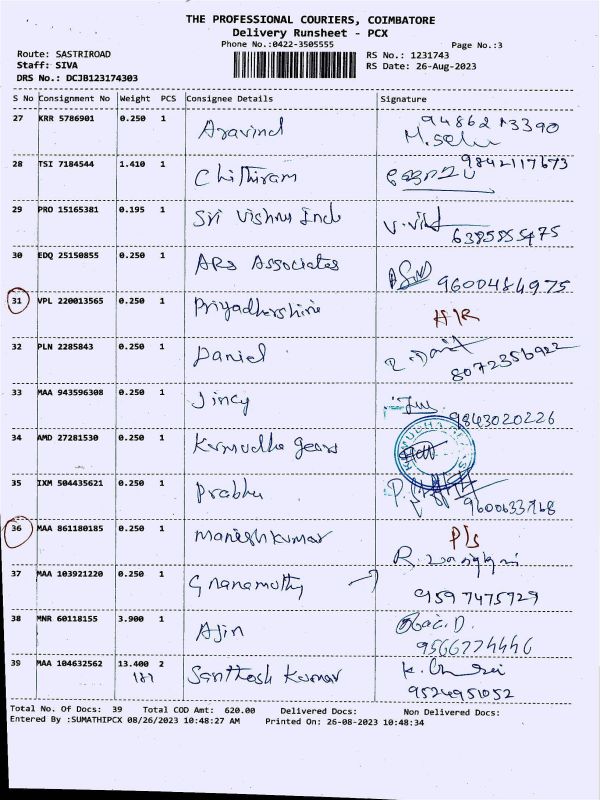 THE PROFESSIONAL COURIERS, COIMBATORE
Delivery Runsheet - PCX
Phone No.:0422-3505555 Page No.:3
Route: SASTRIROAD RS No.: 1231743
Staff: SIVA RS Date: 26-Aug-2023
DRS No.: DCJB123174303
S No Consignment No Weight PCS Consignee Details Signature
27 KRR 5786901 0.250 1 Aravind
M. Selu
28 TSI 7184544 1.410 1 Chithiram 9842117673
29 PRO 15165381 0.195 1 Sri Vishnu Inds
6385855475
30 EDQ 25150855 0.250 1 ARS Associates 9600484975
31 VPL 220013565 0.250 1 Priyadharshini
32 PLN 2285843 0.250 1 Daniel
8072356922
33 MAA 943596308 0.250 1 Jincy 9843020226
34 AMD 27281530 0.250 1 Kumudha Gears
35 IXM 504435621 0.250 1 Prabhu
9600633768
36 MAA 861180185 0.250 1 Manishkumar P/s
37 MAA 103921220 0.250 1 Gnanamuthy
9597475729
38 MNR 60118155 3.900 1 Ajin
9566774446
39 MAA 104632562 13.400 2 Santhosh Kumar
9524951052
Total No. Of Docs: 39 Total COD Amt: 620.00 Delivered Docs: Non Delivered Docs:
Entered By :SUMATHIPCX 08/26/2023 10:48:27 AM Printed On: 26-08-2023 10:48:34